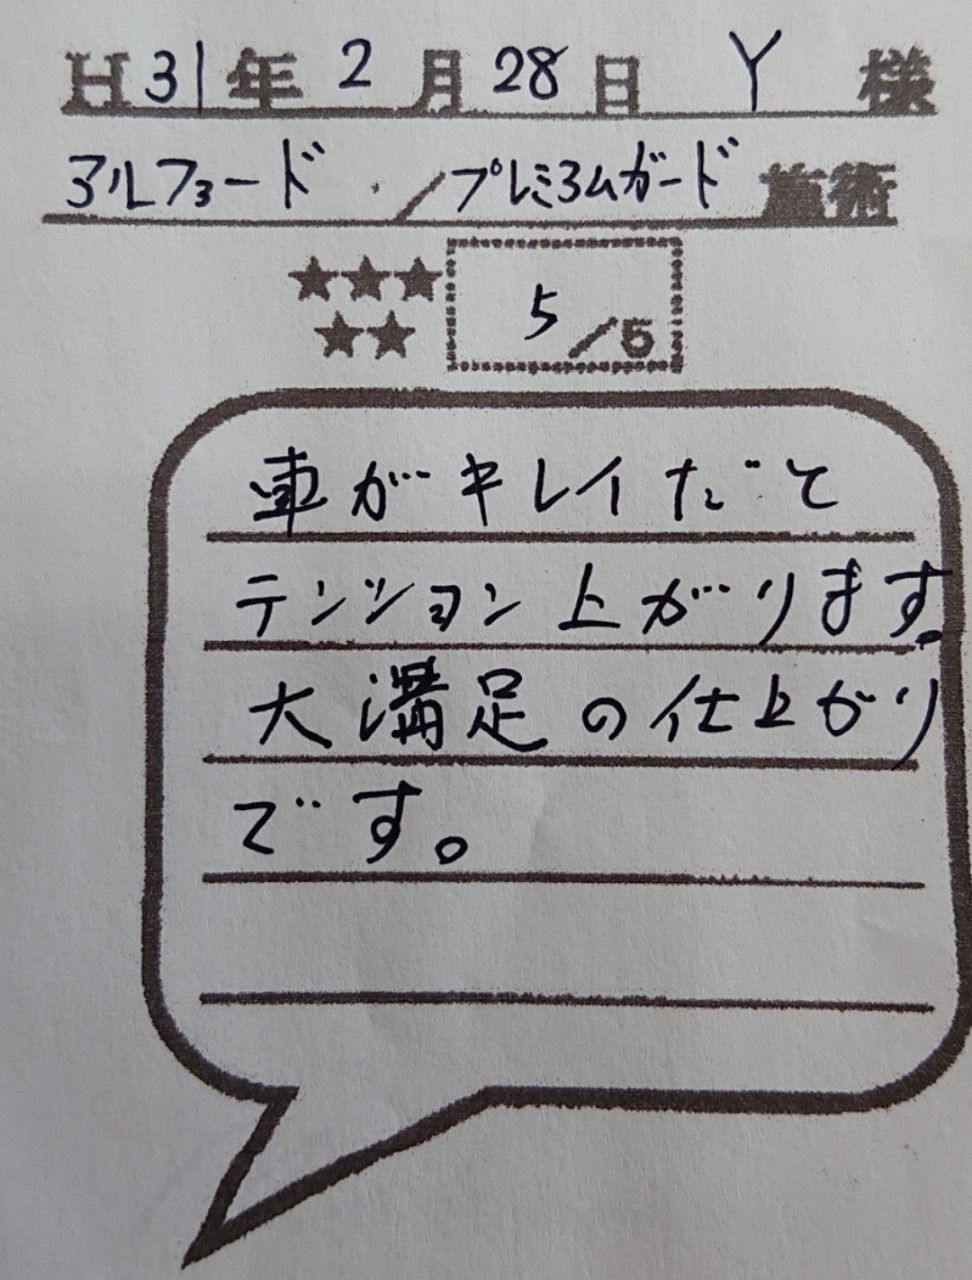 H31年2月28日 Y 様
アルファード ・/プレミアムガード 施術
★★★
★★
5/5
車がキレイだと
テンション上がります。
大満足の仕上がり
です。